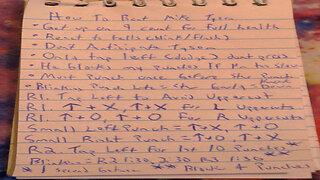 How To Beat Mike Tyson
• Get up on 9 count for Full health
• React to tells (blink/Flash)
• Dont Anticipate Tyson
• Only tap left (dodge) dont press
• He blocks my punches if I'm to slow
• Must Punch once before the Punch
• Blinking Punch
R1. Tap Left to Avoid Uppercut
R1. ↑+X, ↑+X For L Uppercuts
R1. ↑+O, ↑+O For R Uppercuts
Small Left Punch = ↑+X, ↑+O
Small Right Punch = ↑+O, ↑+X
R2. Tap Left For 1st 10 Punches
Blinking = R2 1:30, 2:30 R3 1:30
* 1 Second before * Block 4 Punches